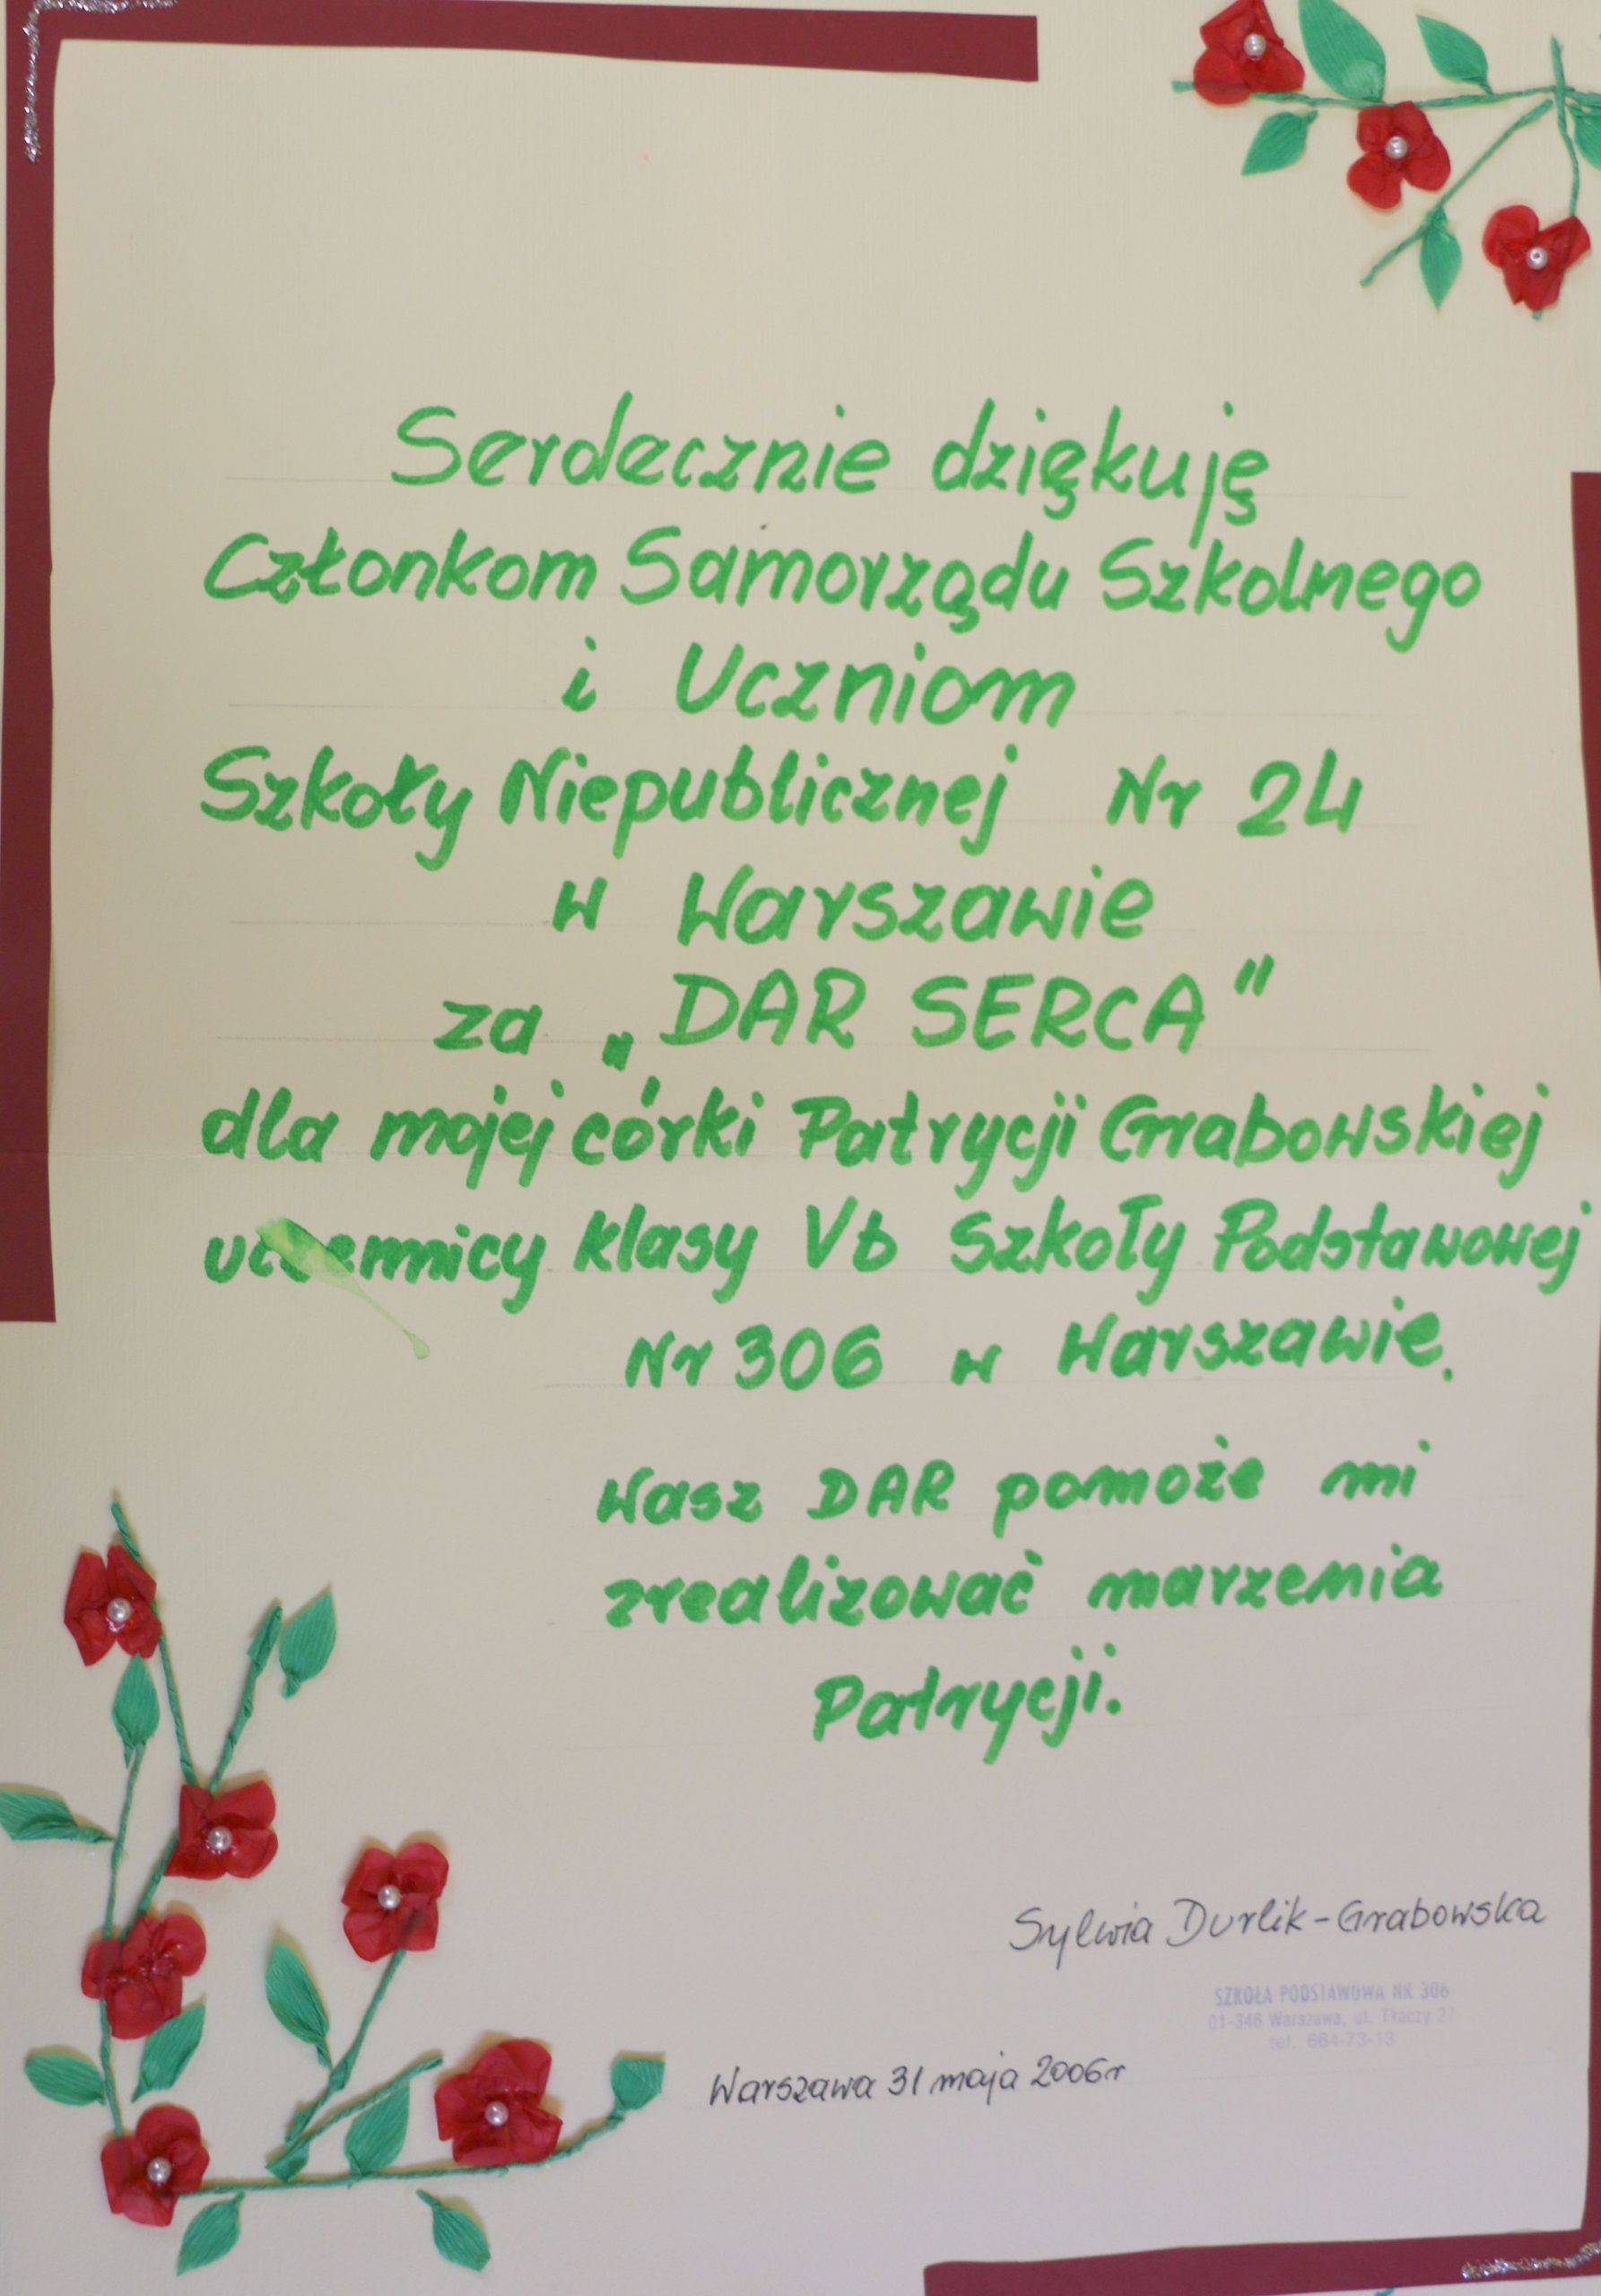 Serdecznie dziękuję
Członkom Samorządu Szkolnego
i Uczniom
Szkoły Niepublicznej Nr 24
w Warszawie
za „DAR SERCA"
dla mojej córki Patrycji Grabowskiej
uczennicy klasy Vb Szkoły Podstawowej
Nr 306 w Warszawie.
Wasz DAR pomoże mi
zrealizować marzenia
Patrycji.
Sylwia Durlik-Grabowska
SZKOŁA PODSTAWOWA NR 306
01-346 Warszawa, ul. Tkaczy 27
tel. 664-73-13
Warszawa 31 maja 2006r